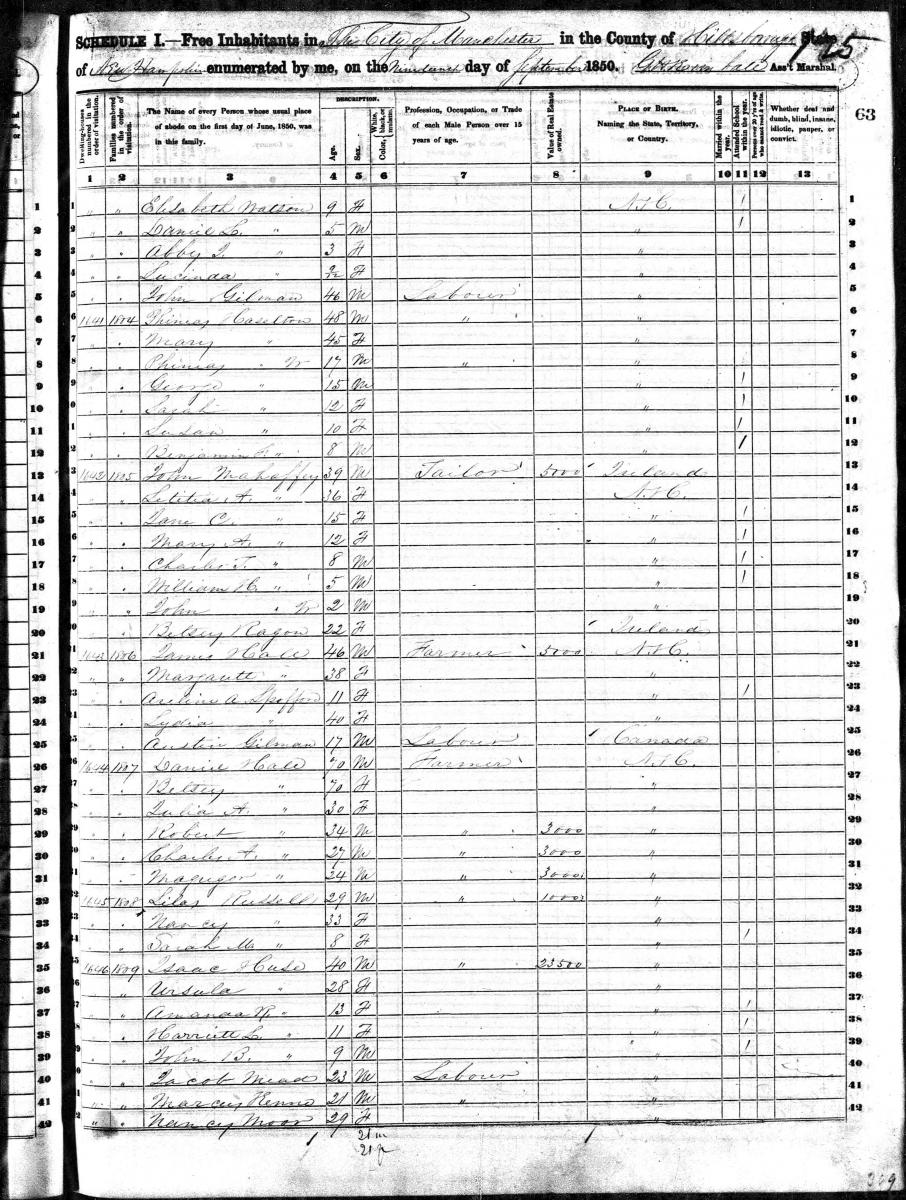 SCHEDULE I.—Free Inhabitants in The City of Manchester in the County of Hillsborough State
of New Hampshire enumerated by me, on the Nineteenth day of September 1850. Ass't Marshal.
63
Dwelling-houses numbered in the order of visitation.
Families numbered in the order of visitation.
The Name of every Person whose usual place of abode on the first day of June, 1850, was in this family.
DESCRIPTION.
Age.
Sex.
Color, White, black, or mulatto.
Profession, Occupation, or Trade of each Male Person over 15 years of age.
Value of Real Estate owned.
PLACE OF BIRTH. Naming the State, Territory, or Country.
Married within the year.
Attended School within the year.
Persons over 20 y'rs of age who cannot read & write.
Whether deaf and dumb, blind, insane, idiotic, pauper, or convict.
1 2 3 4 5 6 7 8 9 10 11 12 13
1 " " Elisabeth Watson 9 F N.H. 1
2 " " Daniel L. " 5 M " 1
3 " " Abby J. " 3 F "
4 " " Lucinda " F "
5 " " John Gilman 46 M Labourer "
6 1641 1804 Phineas Haselton 48 M " "
7 " " Mary " 45 F "
8 " " Phineas " Jr 17 M " "
9 " " George " 15 M " 1
10 " " Sarah " 12 F " 1
11 " " Susan " 10 F " 1
12 " " Benjamin F. " 8 M " 1
13 1642 1805 John Mahaffey 39 M Tailor 5000 Ireland
14 " " Letitia A. " 36 F N.H.
15 " " Jane C. " 15 F " 1
16 " " Mary A. " 12 F " 1
17 " " Charles T. " 8 M " 1
18 " " William H. " 5 M " 1
19 " " John " Jr 2 M "
20 " " Betsey Ragon 22 F Ireland
21 1643 1806 James Hall 46 M Farmer 5000 N.H.
22 " " Margarett " 38 F "
23 " " A. Spofford 11 F " 1
24 " " Lydia " 40 F "
25 " " Austin Gilman 17 M Labourer Canada
26 1644 1807 Daniel Hall 70 M Farmer N.H.
27 " " Betsey " 70 F "
28 " " Julia A. " 30 F "
29 " " Robert " 34 M " 3000 "
30 " " Charles A. " 27 M " 3000 "
31 " " Macgregor " 24 M " 3000 "
32 1645 1808 Silas Russell 29 M " 1000 "
33 " " Nancy " 33 F "
34 " " Sarah M. " 8 F " 1
35 1646 1809 Isaac Huse 40 M " 23500 "
36 " " Ursula " 28 F "
37 " " Amanda R. " 13 F " 1
38 " " Harriett L. " 11 F " 1
39 " " John B. " 9 M " 1
40 " " Jacob Mead 23 M Labourer "
41 " " Marcus 21 M " "
42 " " Nancy Moor 29 F "
21 m
21 f